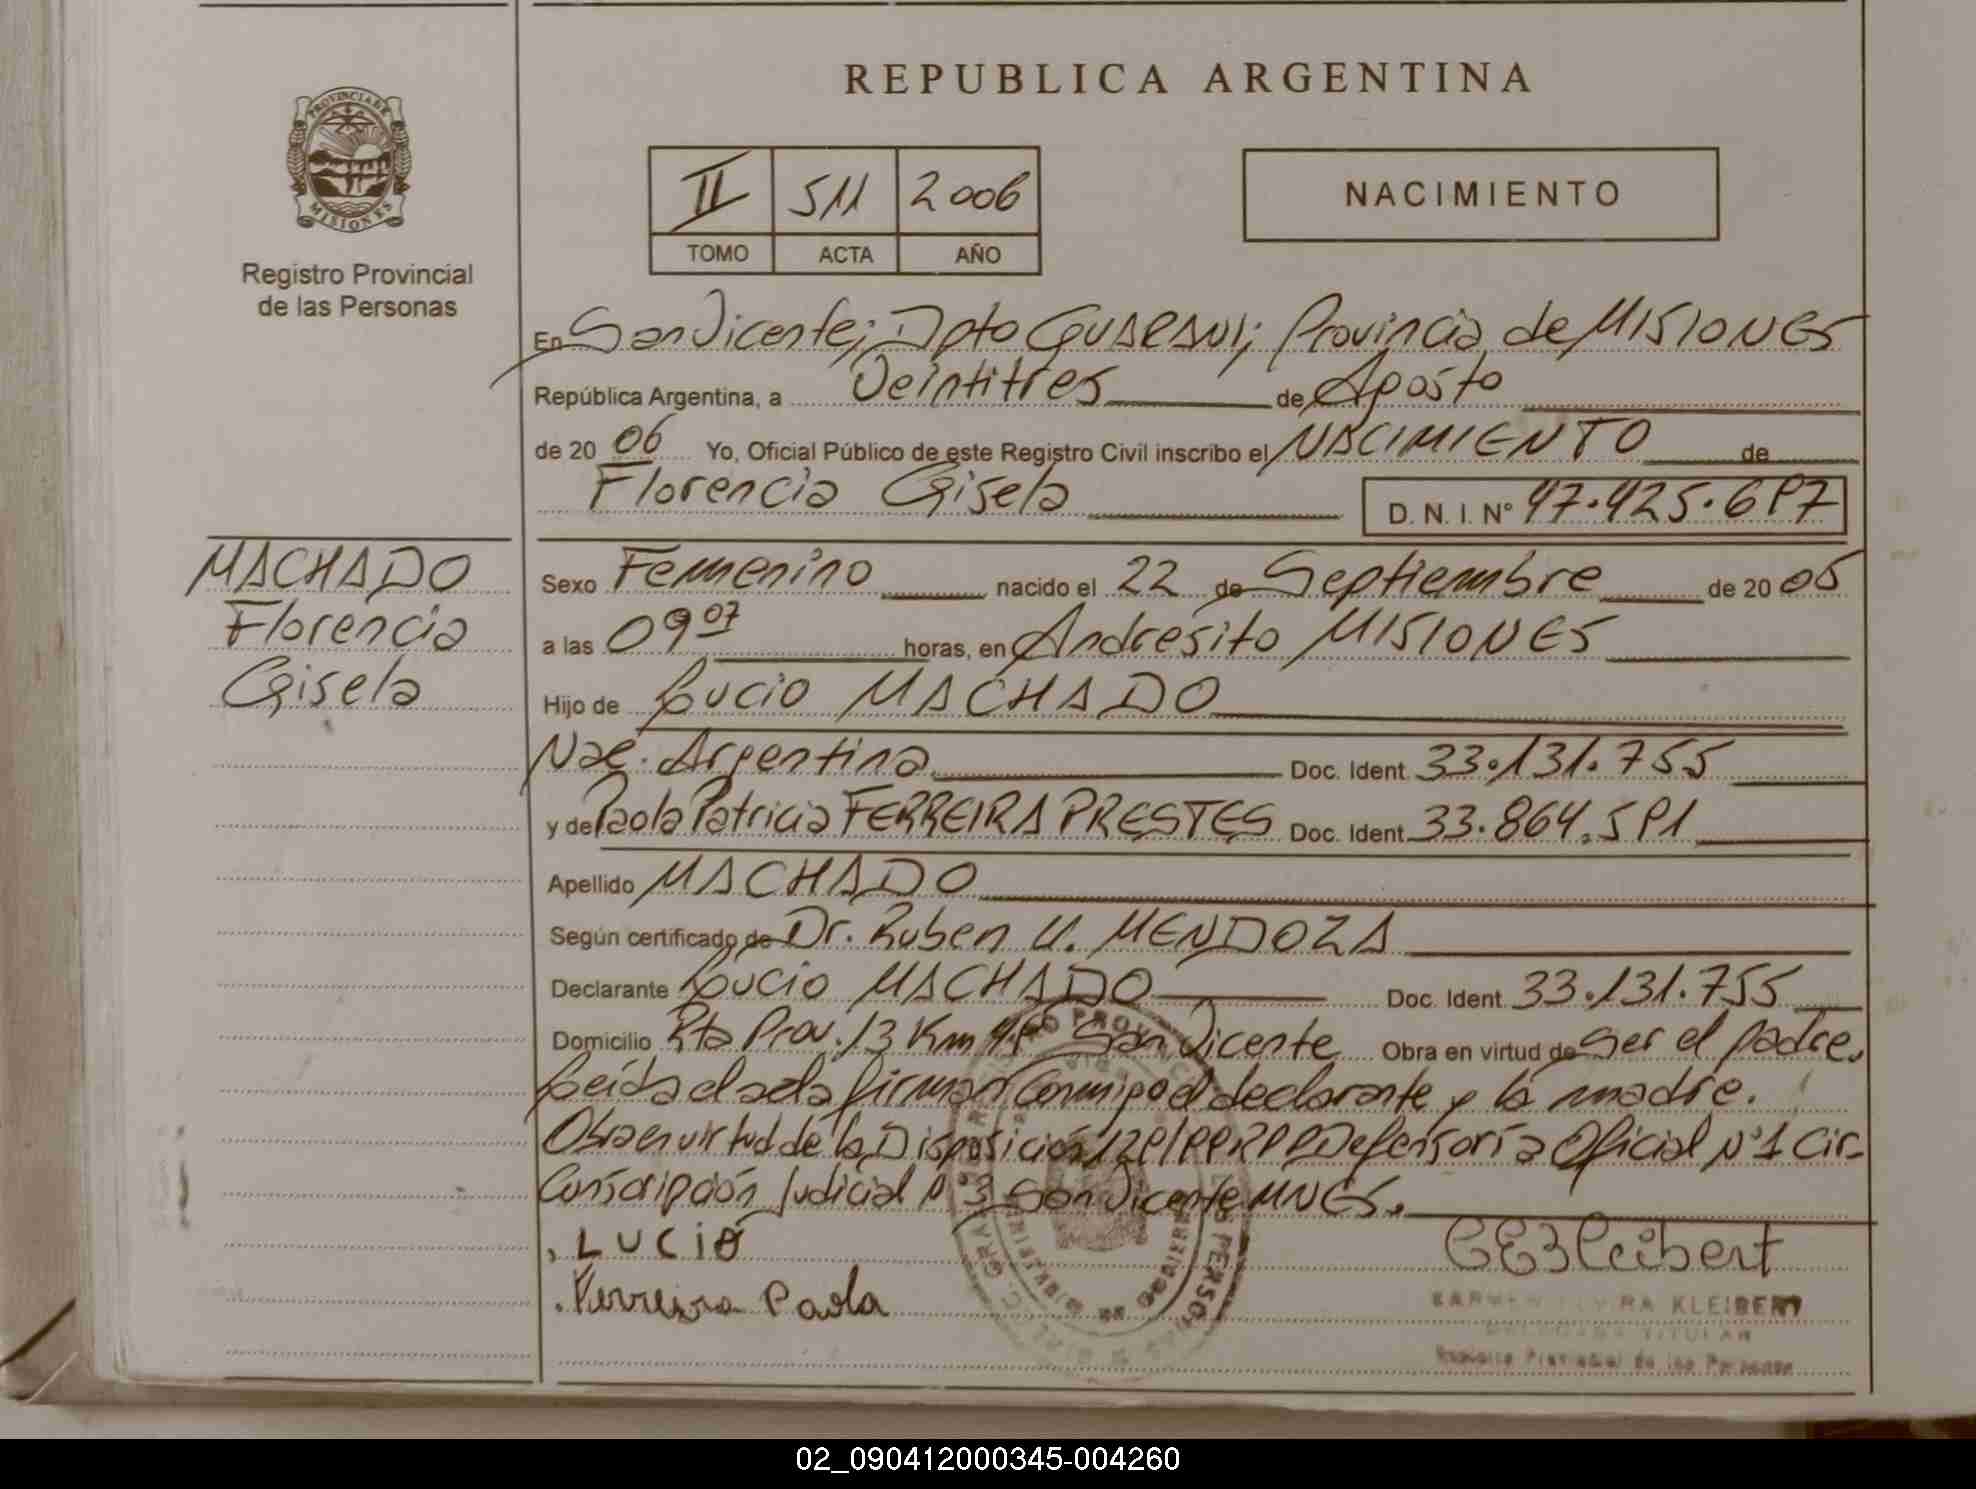 REPUBLICA ARGENTINA
PROVINCIA DE
MISIONES
Registro Provincial
de las Personas
II 511 2006
TOMO ACTA AÑO
NACIMIENTO
En San Vicente; Dpto GUARANI; Provincia de MISIONES
República Argentina, a Veintitres de Agosto
de 20 06 Yo, Oficial Público de este Registro Civil inscribo el NACIMIENTO de
Florencia Gisela D. N. I. Nº 47.425.697
MACHADO
Florencia
Gisela
Sexo Femenino nacido el 22 de Septiembre de 20 05
a las 09 07 horas, en Andresito MISIONES
Hijo de Lucio MACHADO
Nac. Argentina Doc. Ident. 33.131.755
y de Paola Patricia FERREIRA PRESTES Doc. Ident. 33.864.591
Apellido MACHADO
Según certificado de Dr. Ruben U. MENDOZA
Declarante Lucio MACHADO Doc. Ident. 33.131.755
Domicilio Rta Prov. 13 Km San Vicente Obra en virtud de ser el padre.
Leída el acta firman conmigo el declarante y la madre.
Obra en virtud de la Disposición Defensoría Oficial Nº1 Cir-
cunscripción Judicial Nº 3 San Vicente MNES.
LUCIO
Ferreira Paola
KLEIBERT
DELEGADA TITULAR
Registro Provincial de las Personas
02_090412000345-004260